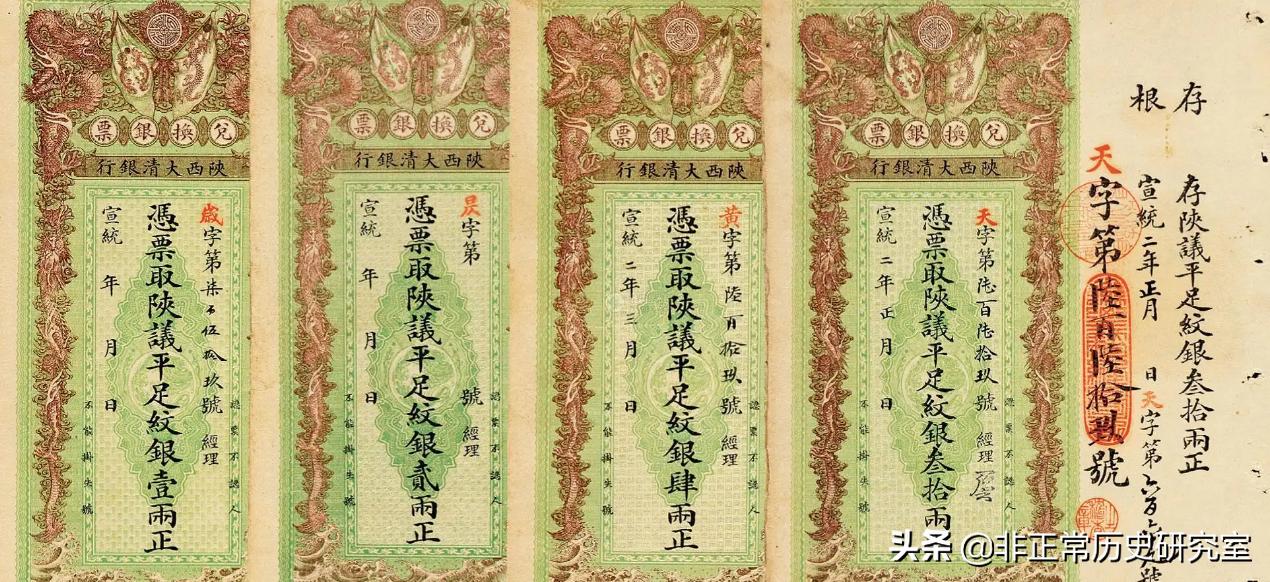 兌換銀票
陝西大清銀行
歲字第柒百伍拾玖號 經理
憑票取陝議平足紋銀壹兩正
宣統 年 月 日
認票不認人
不能掛失號
兌換銀票
陝西大清銀行
昃字第 號 經理
憑票取陝議平足紋銀貳兩正
宣統 年 月 日
認票不認人
不能掛失號
兌換銀票
陝西大清銀行
黃字第陸百拾玖號 經理
憑票取陝議平足紋銀肆兩正
宣統二年三月 日
認票不認人
不能掛失號
兌換銀票
陝西大清銀行
天字第陸百陸拾玖號 經理
憑票取陝議平足紋銀叁拾兩
宣統二年正月 日
認票不認人
不能掛失號
存根
存陝議平足紋銀叁拾兩正
宣統二年正月 日天字第六百六
天字第陸百陸拾玖號
头条 @非正常历史研究室